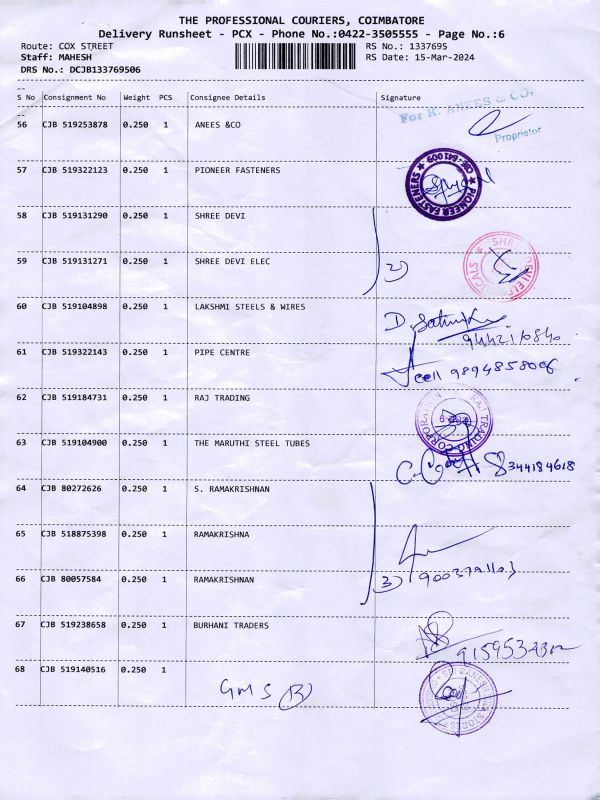 THE PROFESSIONAL COURIERS, COIMBATORE
Delivery Runsheet - PCX - Phone No.:0422-3505555 - Page No.:6
Route: COX STREET RS No.: 1337695
Staff: MAHESH RS Date: 15-Mar-2024
DRS No.: DCJB133769506
S No Consignment No Weight PCS Consignee Details Signature
For K. ANEES & CO.
56 CJB 519253878 0.250 1 ANEES &CO
Proprietor
57 CJB 519322123 0.250 1 PIONEER FASTENERS
★ PIONEER FASTENERS ★ CBE-641 009
58 CJB 519131290 0.250 1 SHREE DEVI
59 CJB 519131271 0.250 1 SHREE DEVI ELEC 2)
60 CJB 519104898 0.250 1 LAKSHMI STEELS & WIRES
D.
61 CJB 519322143 0.250 1 PIPE CENTRE
cell 9894858006
62 CJB 519184731 0.250 1 RAJ TRADING
RAJ TRADING CORPORATION
63 CJB 519104900 0.250 1 THE MARUTHI STEEL TUBES
8344184618
64 CJB 80272626 0.250 1 S. RAMAKRISHNAN
65 CJB 518875398 0.250 1 RAMAKRISHNA
66 CJB 80057584 0.250 1 RAMAKRISHNAN 3)
67 CJB 519238658 0.250 1 BURHANI TRADERS
68 CJB 519140516 0.250 1
GMS